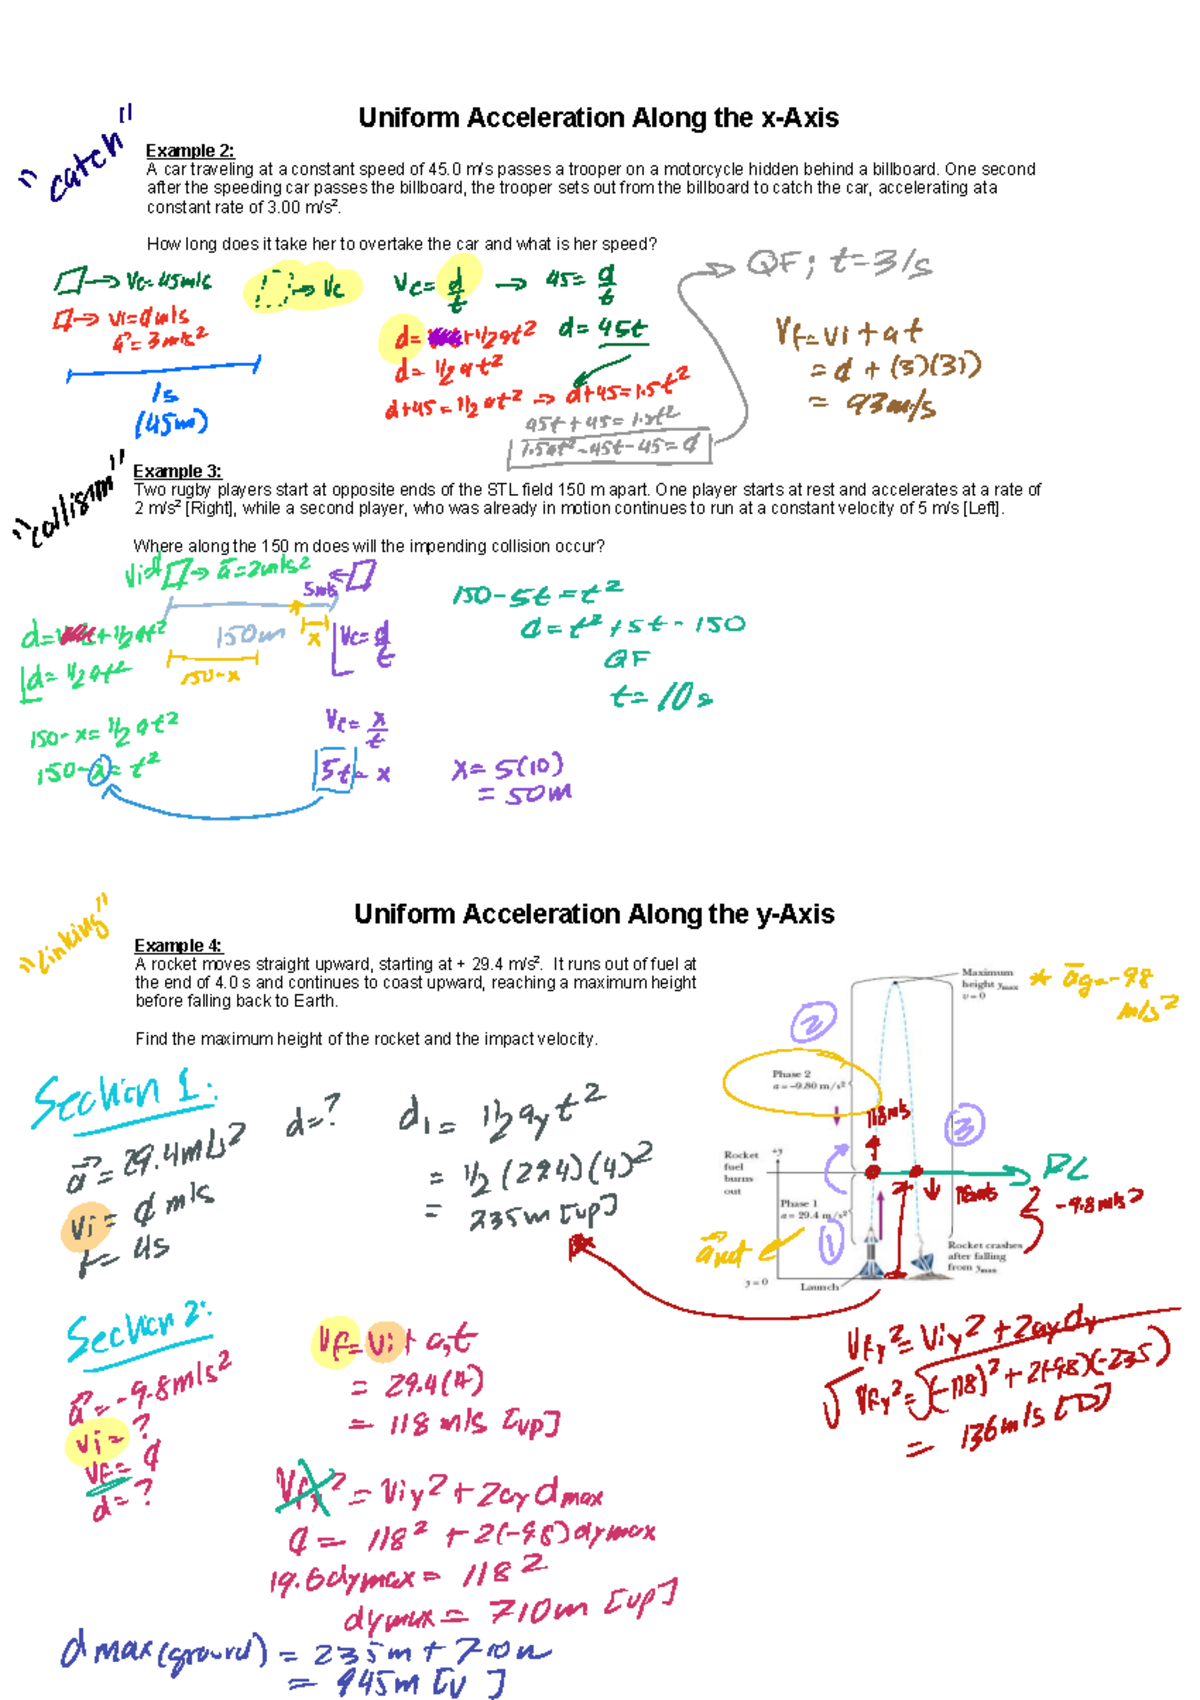 Uniform Acceleration Along the x-Axis
"catch"
Example 2:
A car traveling at a constant speed of 45.0 m/s passes a trooper on a motorcycle hidden behind a billboard. One second
after the speeding car passes the billboard, the trooper sets out from the billboard to catch the car, accelerating at a
constant rate of 3.00 m/s².
How long does it take her to overtake the car and what is her speed?
→ Vc=45m/s
→ Vc
Vc = d/t → 45 = d/t
QF; t=31s
→ Vi=0m/s
a=3m/s²
d= +1/2at²
d=45t
d=1/2at²
d+45=1/2at² → d+45=1.5t²
1s
(45m)
45t+45=1.5t²
1.5t²-45t-45=0
Vf=Vi+at
=0+(3)(31)
=93m/s
"collision"
Example 3:
Two rugby players start at opposite ends of the STL field 150 m apart. One player starts at rest and accelerates at a rate of
2 m/s² [Right], while a second player, who was already in motion continues to run at a constant velocity of 5 m/s [Left].
Where along the 150 m does will the impending collision occur?
Vi=0 → a=2m/s²
5m/s
150m
x
150-x
d= +1/2at²
d=1/2at²
Vc=d/t
150-x=1/2at²
150-x=t²
Vc=x/t
5t=x
150-5t=t²
0=t²+5t-150
QF
t=10s
x=5(10)
=50m
Uniform Acceleration Along the y-Axis
"Linking"
Example 4:
A rocket moves straight upward, starting at + 29.4 m/s². It runs out of fuel at
the end of 4.0 s and continues to coast upward, reaching a maximum height
before falling back to Earth.
Find the maximum height of the rocket and the impact velocity.
Maximum
height ymax
v = 0
* ag=-9.8
m/s²
2
Phase 2
a = −9.80 m/s²
118m/s
3
Rocket
fuel
burns
out
+y
Phase 1
a = 29.4 m/s²
1
118m/s
-9.8m/s²
anet
y = 0
Launch
Rocket crashes
after falling
from ymax
Section 1:
a=29.4m/s²
d=?
Vi=0m/s
t=4s
d1=1/2ayt²
=1/2(29.4)(4)²
=235m[up]
Section 2:
a=-9.8m/s²
Vi=?
Vf=0
d=?
Vf=Vi+at
=29.4(4)
=118m/s[up]
Vfy²=Viy²+2aydmax
0=118²+2(-9.8)dymax
19.6dymax=118²
dymax=710m[up]
dmax(ground)=235m+710m
=945m[U ]
Vfy²=Viy²+2aydy
√Vfy²=√(-118)²+2(-9.8)(-235)
=136m/s[D]